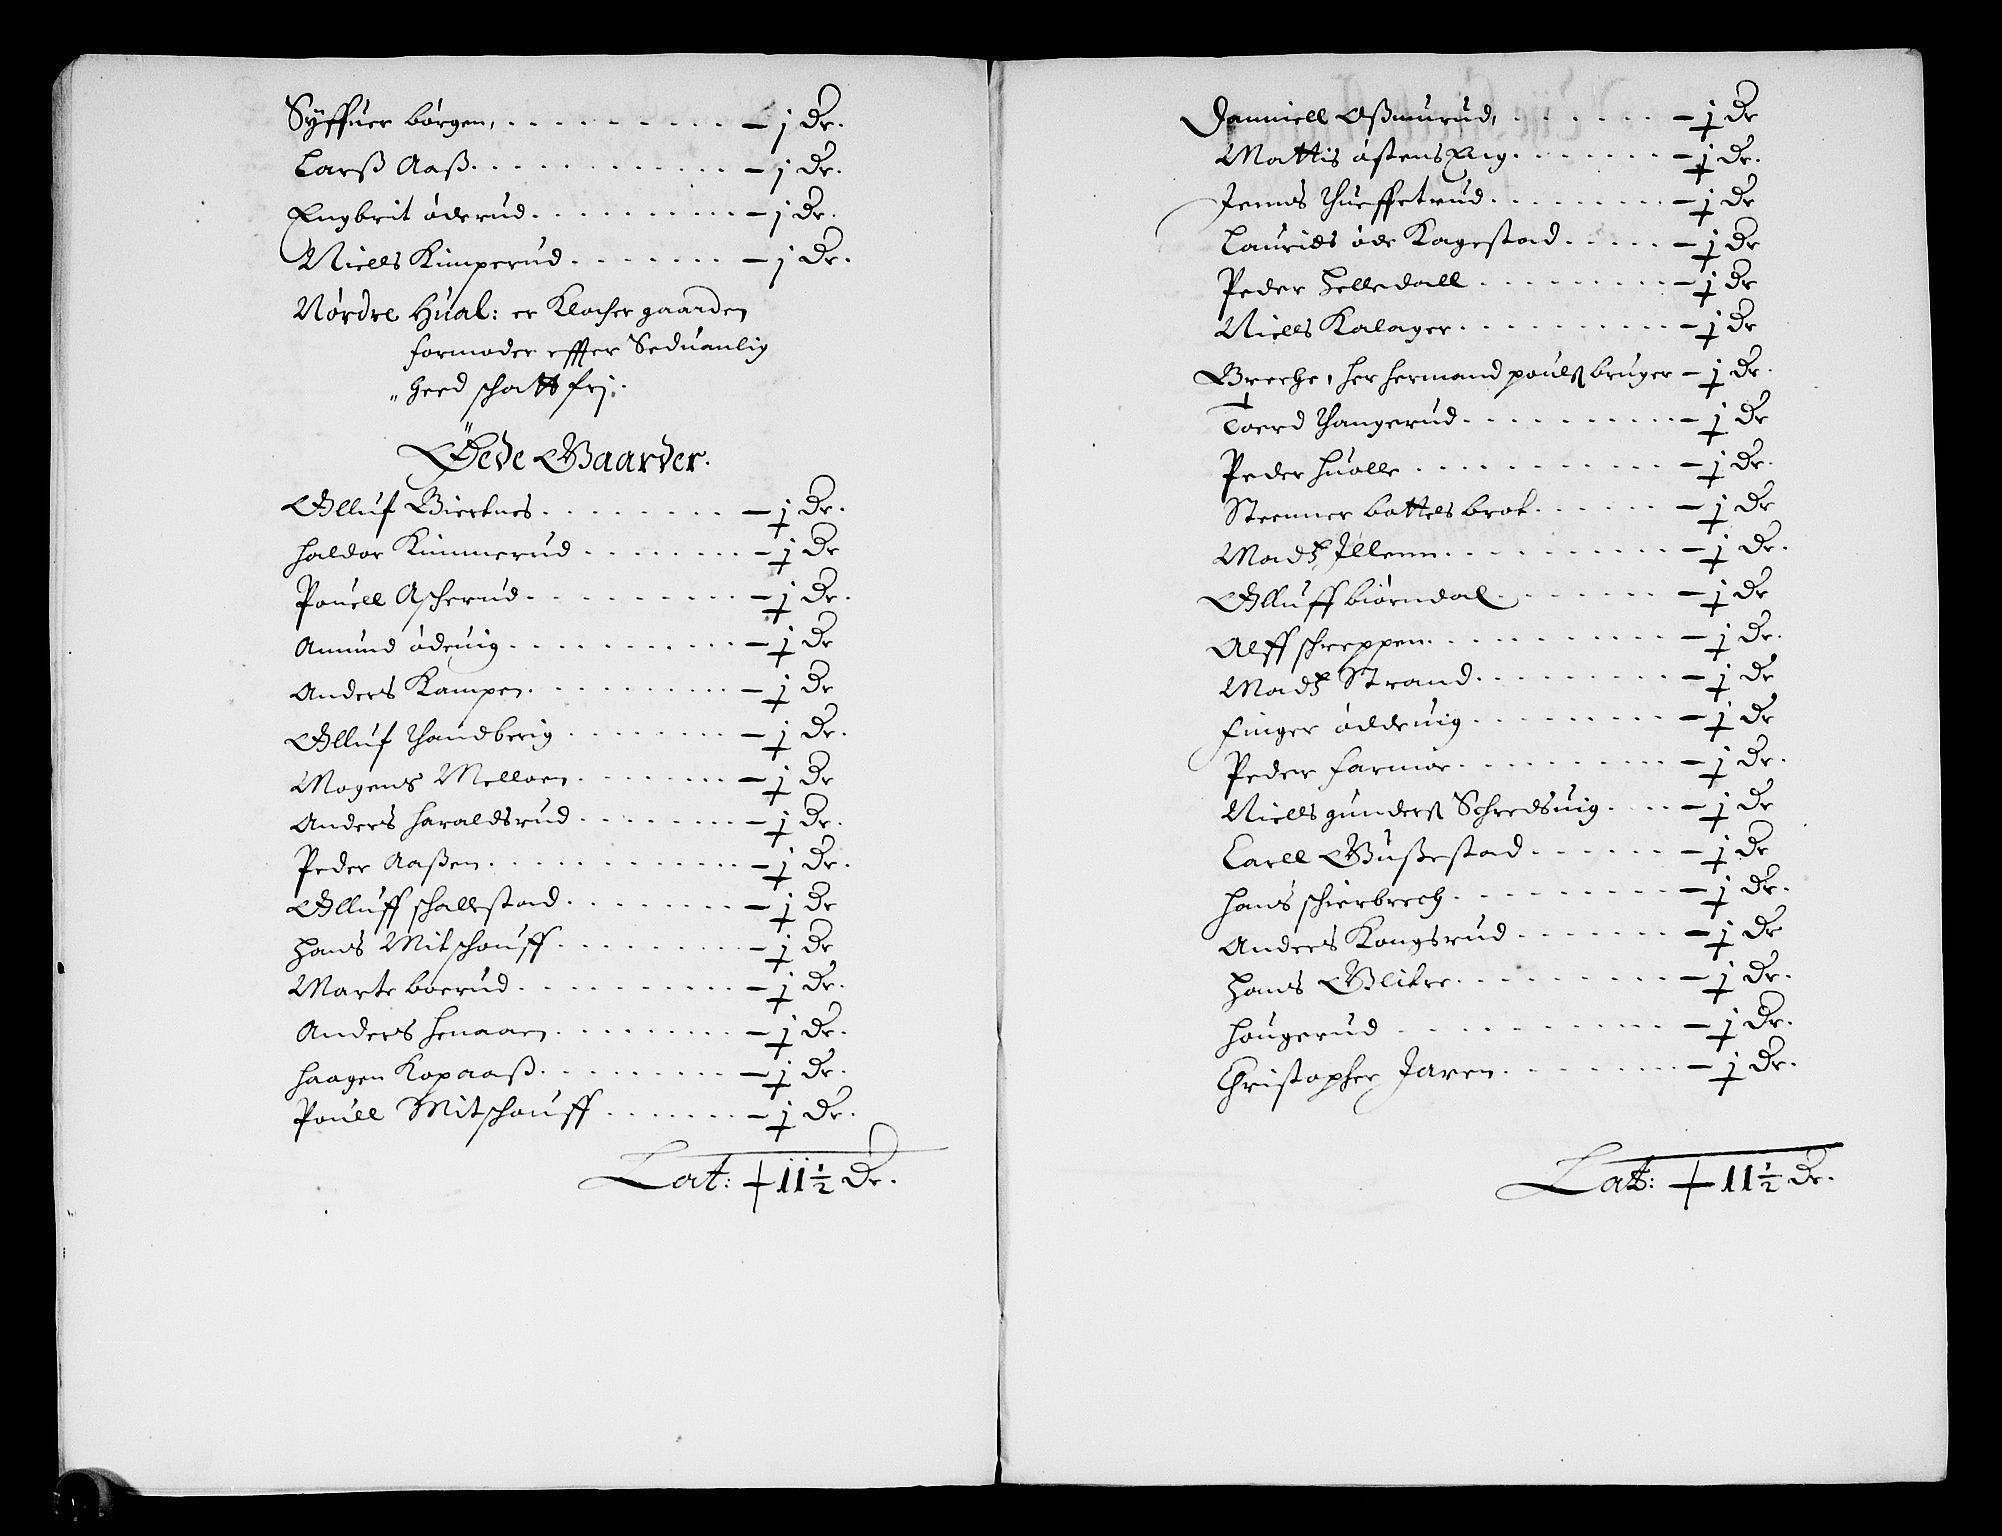 Syffuer børgen, . . . . . . . . . . — j Dr.
Larß Aaß. . . . . . . . . . . . — j Dr.
Engbrit øderud. . . . . . . . . . — j Dr.
Niells Kimperud. . . . . . . . — j Dr.
Nørdre Hual: er Klocker gaarden
formoder effter Seduanlig
heed schatt frj.
Öede Gaarder.
Olluf Bierknes. . . . . . . . . — j Dr.
Haldor Kimmerud . . . . . . . . — j Dr
Pouell Ascherud. . . . . . . . . . — j Dr.
Amund ødeuig. . . . . . . . . . . — j Dr
Anders Kampen. . . . . . . . . . — j Dr
Olluf Thandberig . . . . . . . . — j Dr.
Mogens Melloen. . . . . . . . — j Dr
Anders Haraldsrud . . . . . . . — j Dr.
Peder Aaßen. . . . . . . . . . . — j Dr.
Olluff schallstad. . . . . . . . — j Dr
Hans Mitschouff. . . . . . . . — j Dr
Marte boerud. . . . . . . . . . — j Dr.
Anders Henaaen. . . . . . . . . — j Dr.
Haagen Kopaaß. . . . . . . . . — j Dr.
Pouell Mitschouff . . . . . . . — j Dr.
Lat: 11 ½ Dr.
Danniell Aßmurud, . . . . . . . — j Dr
Mattis østens Eng. . . . . . . . — j Dr.
Jenns Thueffetrud. . . . . . . . . — j Dr
Laurids øde Kagestad. . . . . — j Dr
Peder Helledall . . . . . . . . . — j Dr
Niells Kalager. . . . . . . . . . — j Dr
Breche, her Hermand poulß bruger — j Dr.
Toerd Thangerud. . . . . . . . . . — j Dr
Peder Hualle . . . . . . . . . . . — j Dr.
Steenner battelsbrok. . . . . . — j Dr
Madtz Illenn. . . . . . . . . . — j Dr.
Olluff biørndal. . . . . . . . — j Dr
Alff schreppen. . . . . . . . . . — j Dr.
Madtz Strand. . . . . . . . . — j Dr
Finger øddeuig . . . . . . . . . — j Dr
Peder Farmoe. . . . . . . . . . — j Dr.
Niells gunderß Schredsuig. . . . — j Dr
Carll Gußestad . . . . . . — j Dr
Hans schierbrech. . . . . . . . . — j Dr.
Anders Kongsrud . . . . . . . — j Dr
Hans Blikre. . . . . . . . . . — j Dr.
Hougerud . . . . . . . . . . . — j Dr.
Christopher Jaren. . . . . . . . — j Dr.
Lat: 11 ½ Dr.